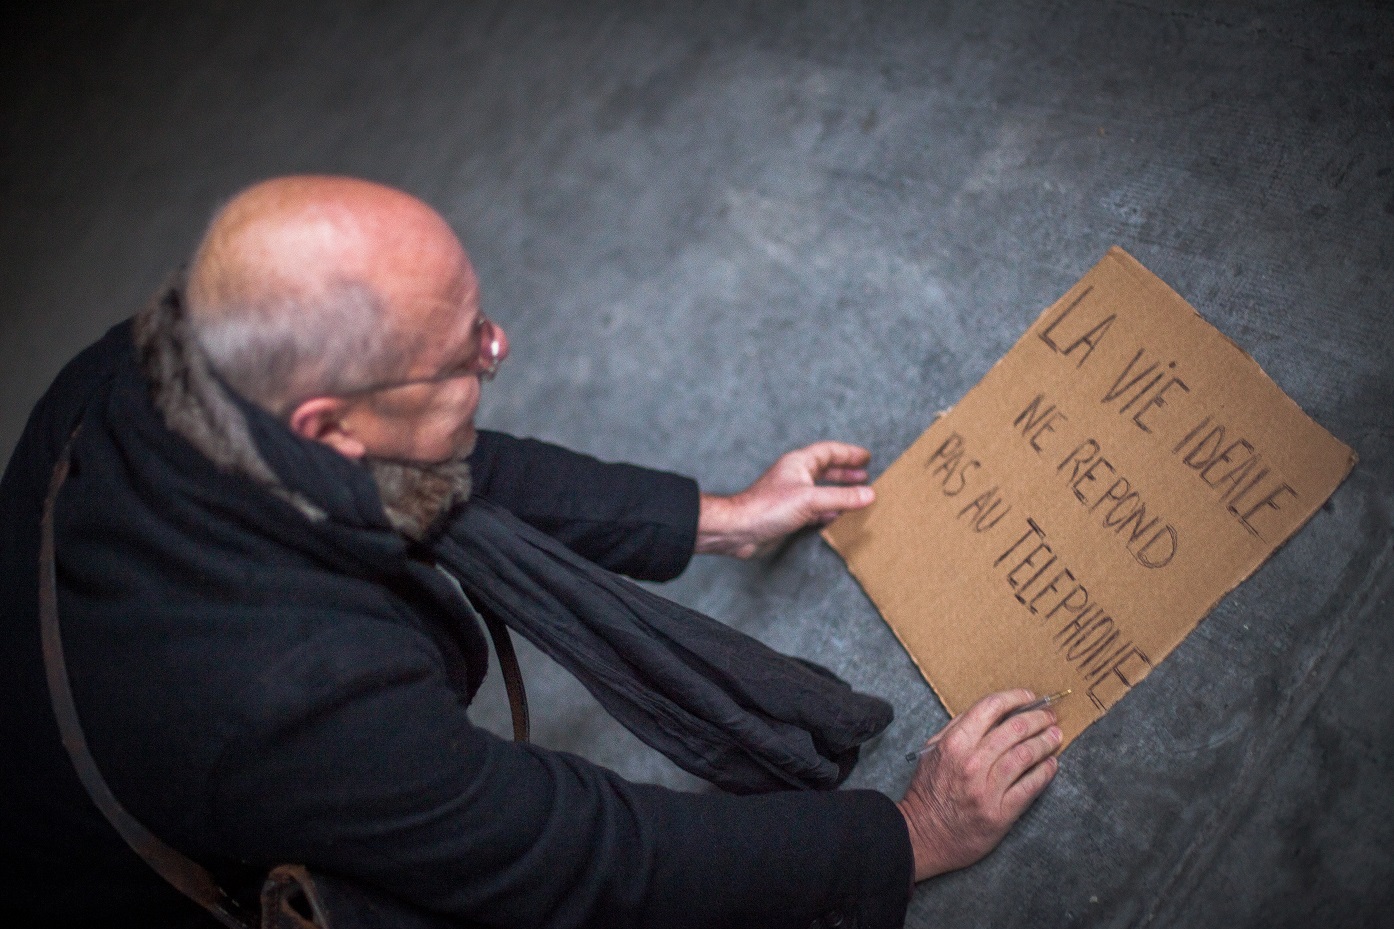 LA VIE IDEALE
NE REPOND
PAS AU TELEPHONE